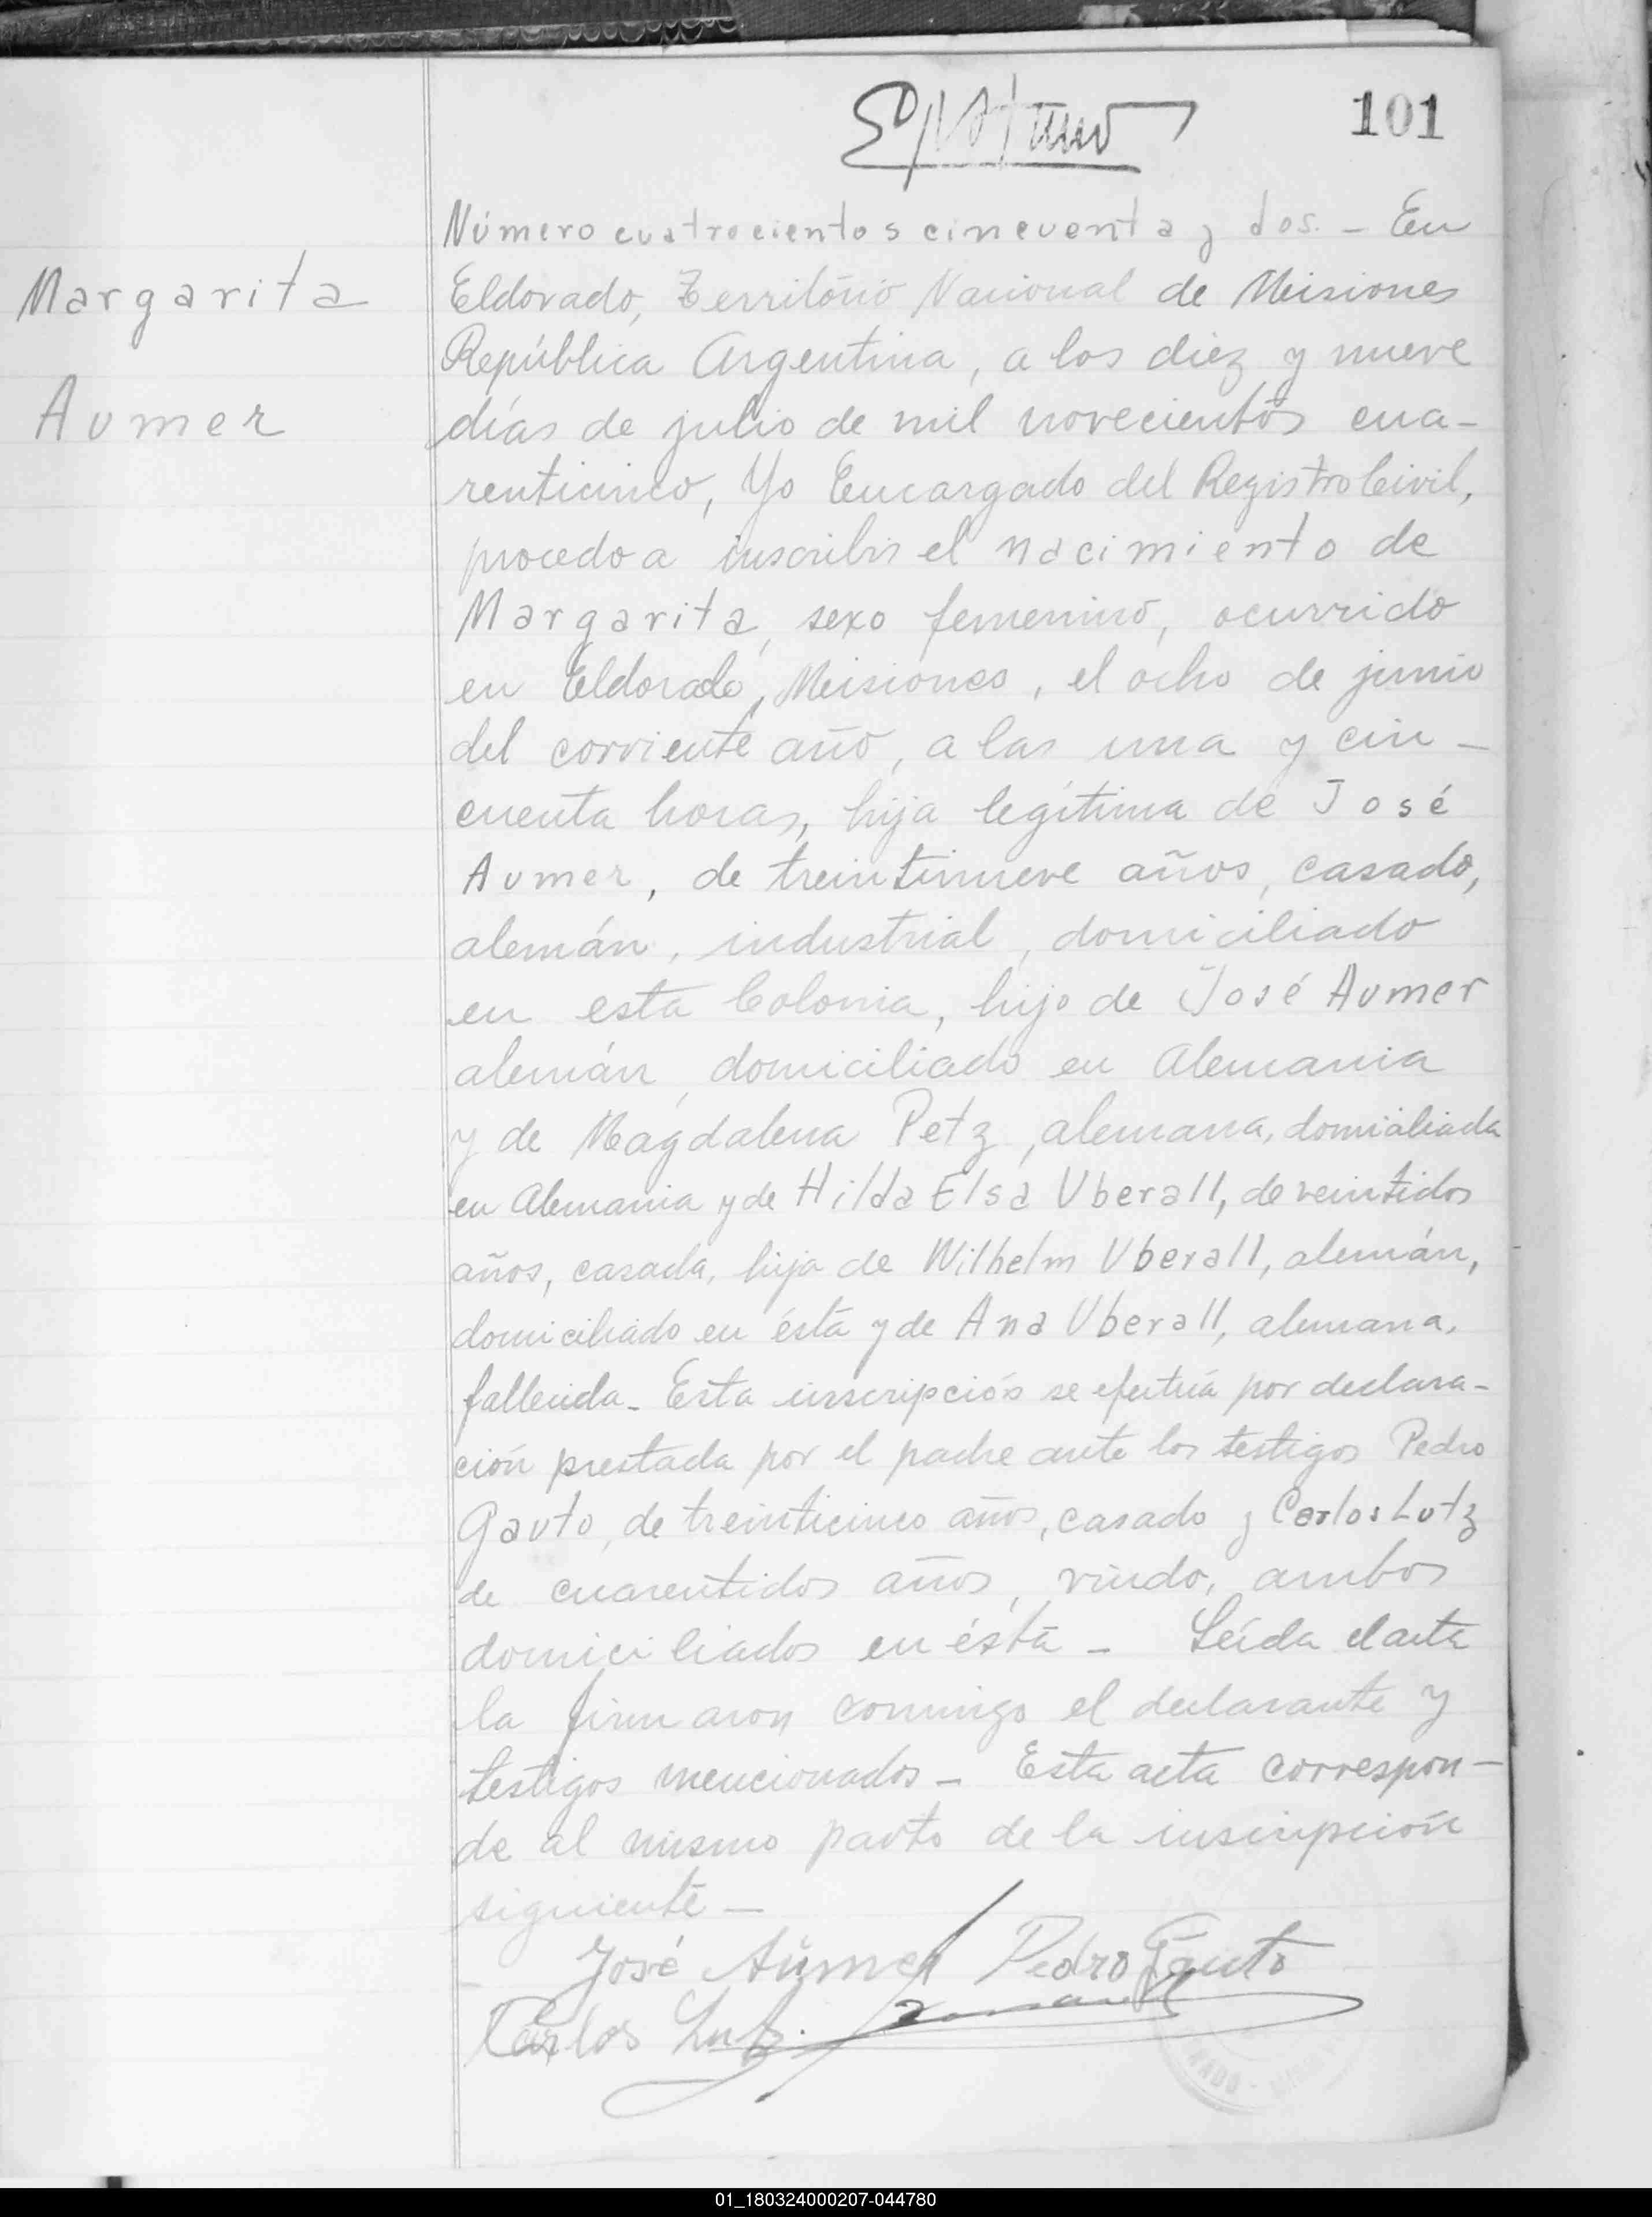 101
Margarita
Aumer
Número cuatrocientos cincuenta y dos. - En
Eldorado, Territorio Nacional de Misiones
República Argentina, a los diez y nueve
días de julio de mil novecientos cua-
renticinco, Yo Encargado del Registro Civil,
procedo a inscribir el nacimiento de
Margarita, sexo femenino, ocurrido
en Eldorado, Misiones, el ocho de junio
del corriente año, a las una y cin-
cuenta horas, hija legítima de José
Aumer, de treintinueve años, casado,
alemán, industrial, domiciliado
en esta Colonia, hijo de José Aumer
alemán, domiciliado en Alemania
y de Magdalena Petz, alemana, domiciliada
en Alemania y de Hilda Elsa Uberall, de veintidos
años, casada, hija de Wilhelm Uberall, alemán,
domiciliado en ésta y de Ana Uberall, alemana,
fallecida - Esta inscripción se efectúa por declara-
ción prestada por el padre ante los testigos Pedro
Gauto, de treinticinco años, casado y Carlos Lutz
de cuarentidos años, viudo, ambos
domiciliados en ésta - Leída el acta
la firmaron conmigo el declarante y
testigos mencionados - Esta acta correspon-
de al mismo parto de la inscripción
siguiente -
José Aumer Pedro Gauto
Carlos Lutz
01_180324000207-044780